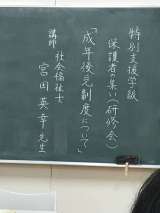 特別支援学級
保護者の集い(研修会)
「成年後見制度について」
講師 社会福祉士
宮田英幸先生